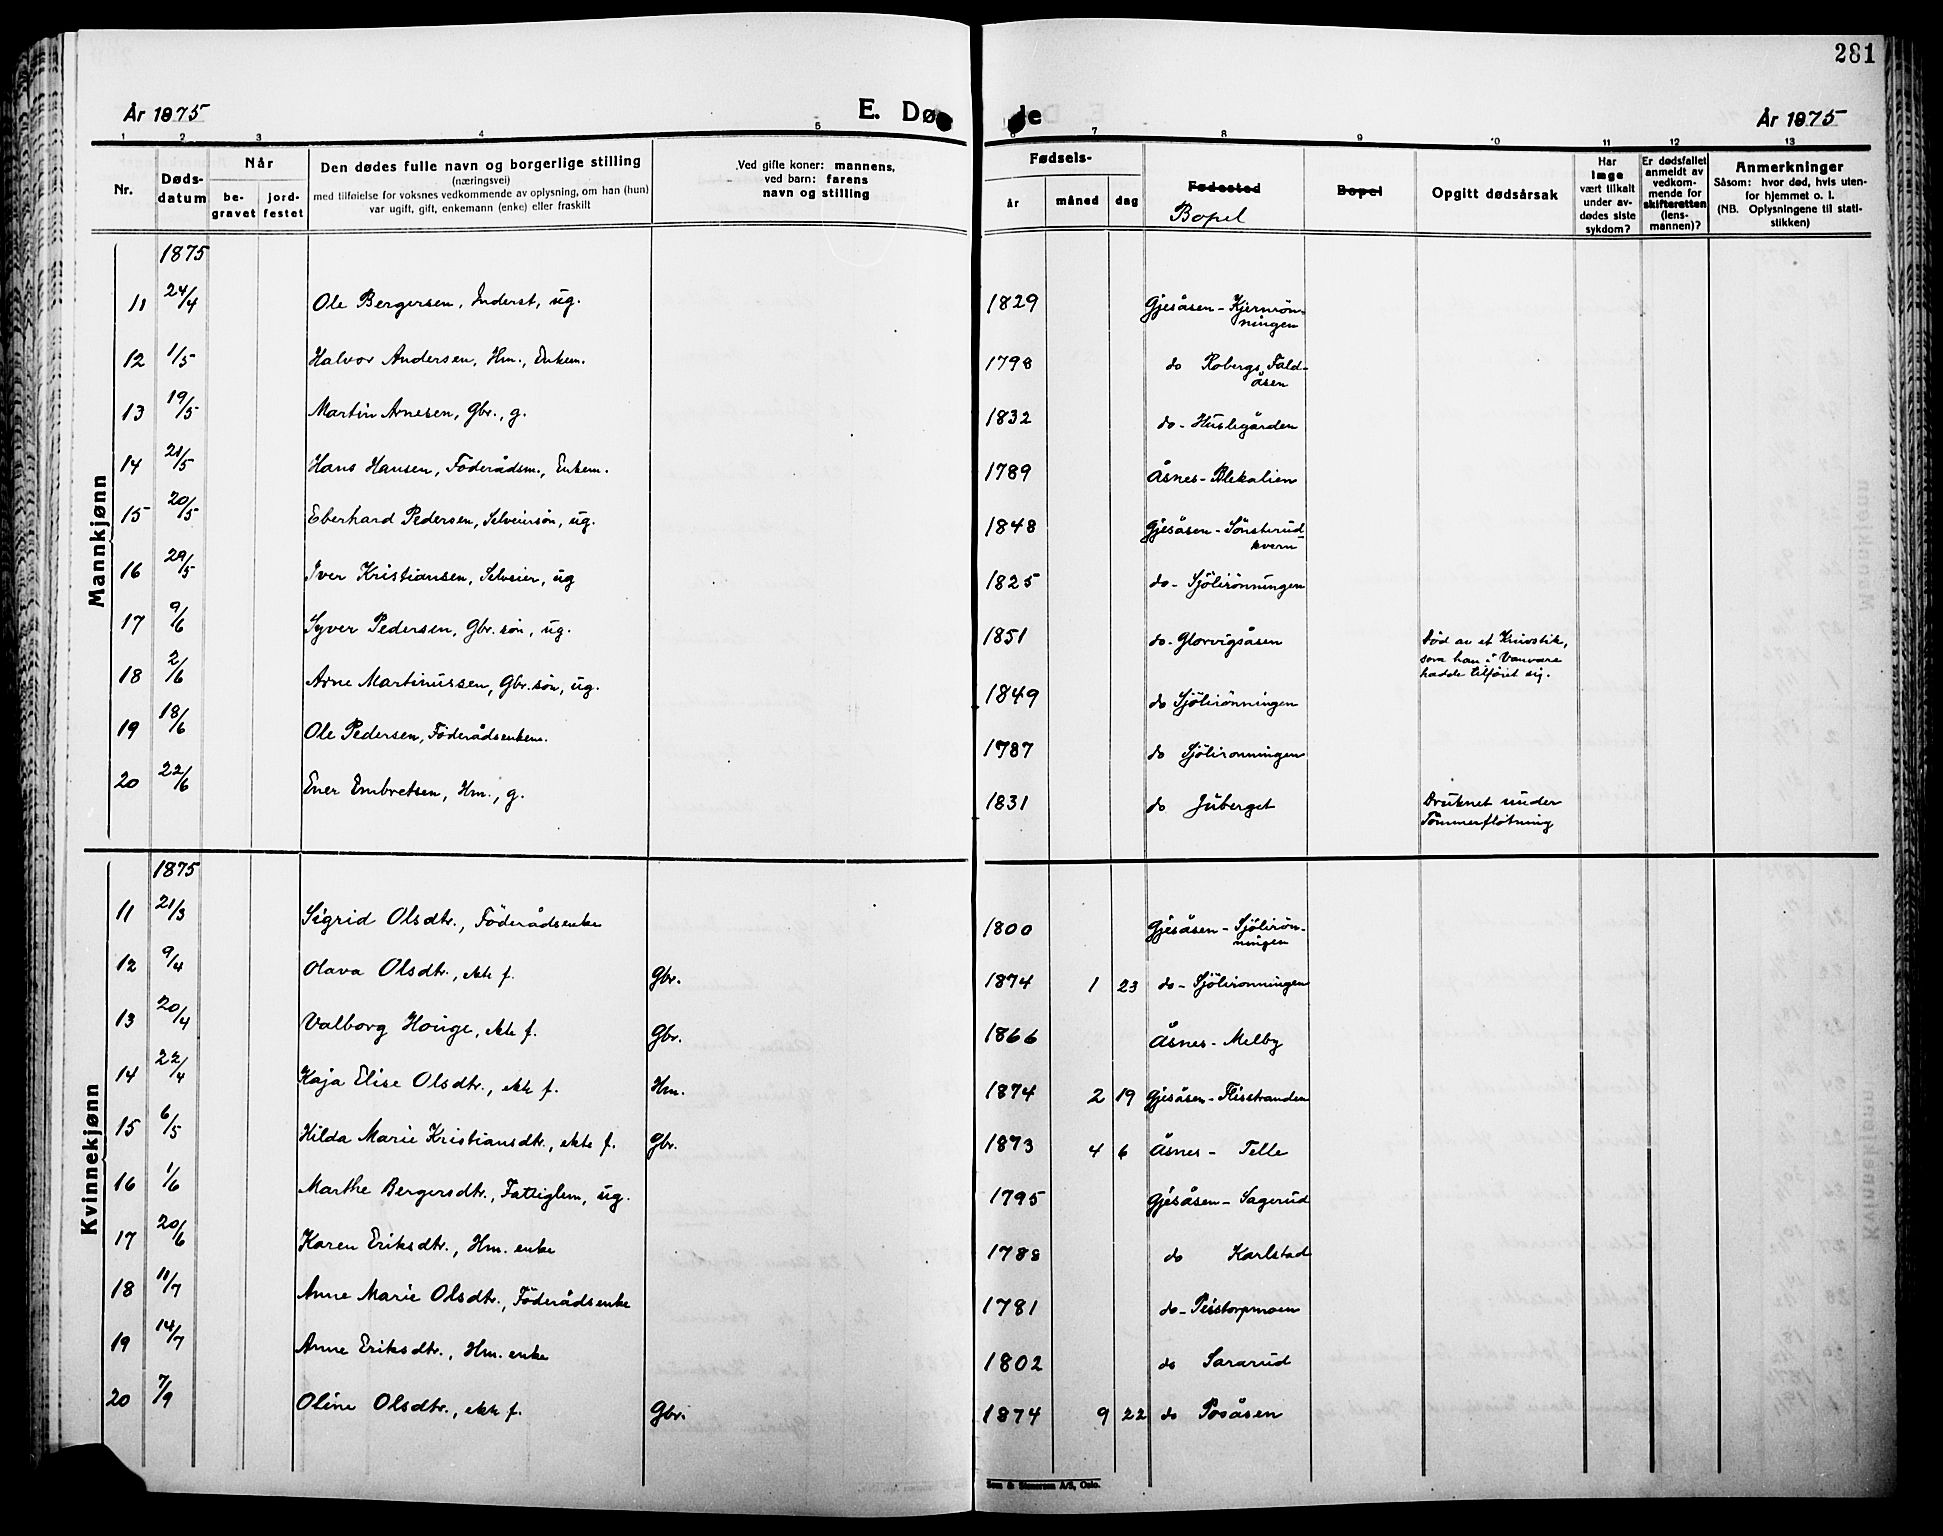 281
År 1875 E. Dø de År 1875
1 2 3 4 5 6 7 8 9 10 11 12 13
Nr.
Døds-
datum
Når
be-
gravet
jord-
festet
Den dødes fulle navn og borgerlige stilling
(næringsvei)
med tilføielse for voksnes vedkommende av oplysning, om han (hun)
var ugift, gift, enkemann (enke) eller fraskilt
Ved gifte koner: mannens,
ved barn: farens
navn og stilling
Fødsels-
år måned dag
Fødested
Bopel
Bopel
Opgitt dødsårsak
Har
læge
vært tilkalt
under av-
dødes siste
sykdom?
Er dødsfallet
anmeldt av
vedkom-
mende for
skifteretten
(lens-
mannen)?
Anmerkninger
Såsom: hvor død, hvis uten-
for hjemmet o. l.
(NB. Oplysningene til stati-
stikken)
Mannkjønn
1875
11 24/4 Ole Bergersen, Inderst, ug. 1829 Gjesåsen - Kjernrön-
ningen
12 1/5 Halvor Andersen, Hm., Enkem. 1798 do Robergs Fald-
åsen
13 19/5 Martin Arnesen, Gbr., g. 1832 do - Husligården
14 21/5 Hans Hansen, Föderådsm., Enkem. 1789 Åsnes - Blekalien
15 20/5 Eberhard Pedersen, Selveiersön, ug. 1848 Gjesåsen - Sönsterud-
kvern
16 29/5 Iver Kristiansen, Selveier, ug 1825 do - Sjölirönningen
17 9/6 Syver Pedersen, Gbr. sön, ug. 1851 do - Glorvigsåsen Död av et Knivstik,
som han i Vanvare
hadde tilföiet sig.
18 2/6 Arne Martinussen, Gbr. sön, ug. 1849 do Sjölirönningen
19 18/6 Ole Pedersen, Föderådsenkem. 1787 do Sjölirönningen
20 22/6 Ener Embretsen, Hm., g. 1831 do Juberget Druknet under
Tömmerflötning
Kvinnekjønn
1875
11 21/3 Sigrid Olsdtr., Föderådsenke 1800 Gjesåsen - Sjölirön-
ningen
12 9/4 Olava Olsdtr., ekte f. Gbr. 1874 1 23 do - Sjölirönningen
13 20/4 Valborg Houge, ekte f. Gbr. 1866 Åsnes - Melby
14 22/4 Kaja Elise Olsdtr., ekte f. Hm. 1874 2 19 Gjesåsen - Flisstranden
15 6/5 Hilda Marie Kristiansdtr., ekte f. Gbr. 1873 4 6 Åsnes - Telle
16 1/6 Marthe Bergersdtr., Fattiglem, ug. 1795 Gjesåsen - Sagerud
17 20/6 Karen Eriksdtr., Hm. enke 1788 do Karlstad
18 11/7 Anne Marie Olsdtr., Föderådsenke 1781 do - Peistorpmoen
19 14/7 Anne Eriksdtr., Hm. enke 1802 do Sararud
20 7/9 Oline Olsdtr., ekte f. Gbr. 1874 9 22 do Posåsen
A/S, Oslo.